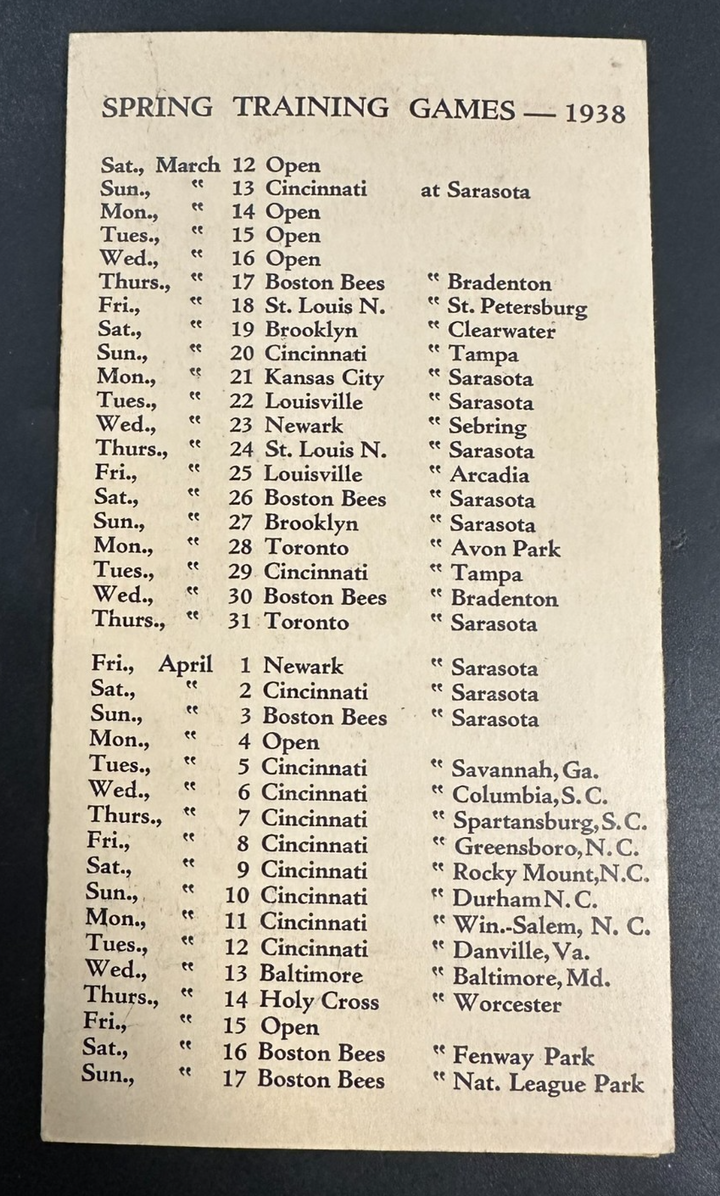 SPRING TRAINING GAMES — 1938
Sat., March 12 Open
Sun., “ 13 Cincinnati at Sarasota
Mon., “ 14 Open
Tues., “ 15 Open
Wed., “ 16 Open
Thurs., “ 17 Boston Bees “ Bradenton
Fri., “ 18 St. Louis N. “ St. Petersburg
Sat., “ 19 Brooklyn “ Clearwater
Sun., “ 20 Cincinnati “ Tampa
Mon., “ 21 Kansas City “ Sarasota
Tues., “ 22 Louisville “ Sarasota
Wed., “ 23 Newark “ Sebring
Thurs., “ 24 St. Louis N. “ Sarasota
Fri., “ 25 Louisville “ Arcadia
Sat., “ 26 Boston Bees “ Sarasota
Sun., “ 27 Brooklyn “ Sarasota
Mon., “ 28 Toronto “ Avon Park
Tues., “ 29 Cincinnati “ Tampa
Wed., “ 30 Boston Bees “ Bradenton
Thurs., “ 31 Toronto “ Sarasota
Fri., April 1 Newark “ Sarasota
Sat., “ 2 Cincinnati “ Sarasota
Sun., “ 3 Boston Bees “ Sarasota
Mon., “ 4 Open
Tues., “ 5 Cincinnati “ Savannah, Ga.
Wed., “ 6 Cincinnati “ Columbia, S. C.
Thurs., “ 7 Cincinnati “ Spartansburg, S. C.
Fri., “ 8 Cincinnati “ Greensboro, N. C.
Sat., “ 9 Cincinnati “ Rocky Mount, N.C.
Sun., “ 10 Cincinnati “ Durham N. C.
Mon., “ 11 Cincinnati “ Win.-Salem, N. C.
Tues., “ 12 Cincinnati “ Danville, Va.
Wed., “ 13 Baltimore “ Baltimore, Md.
Thurs., “ 14 Holy Cross “ Worcester
Fri., “ 15 Open
Sat., “ 16 Boston Bees “ Fenway Park
Sun., “ 17 Boston Bees “ Nat. League Park